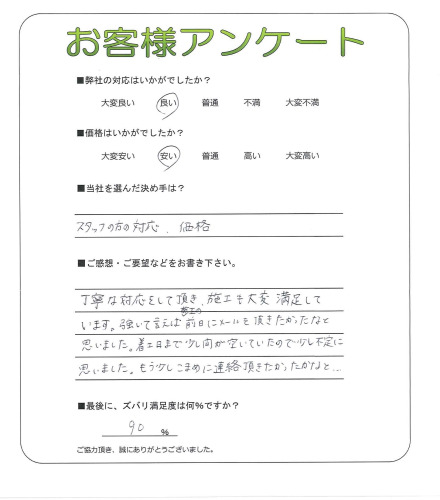 お客様アンケート
■弊社の対応はいかがでしたか？
大変良い 良い 普通 不満 大変不満
■価格はいかがでしたか？
大変安い 安い 普通 高い 大変高い
■当社を選んだ決め手は？
スタッフの方の対応、価格
■ご感想・ご要望などをお書き下さい。
丁寧な対応をして頂き、施工も大変満足して
います。強いて言えば着工の前日にメールを頂きたかったなと
思いました。着工日まで少し間が空いていたので少し不定に
思いました。もう少しこまめに連絡頂きたかったかなと...
■最後に、ズバリ満足度は何%ですか？
90 %
ご協力頂き、誠にありがとうございました。